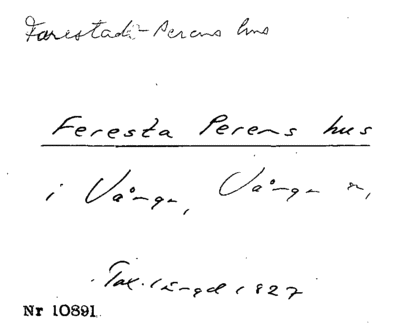 Farestads-Perens hus
Feresta Perens hus
i Vånga, Vånga sn,
Tax.längd 1827
Nr 10891.